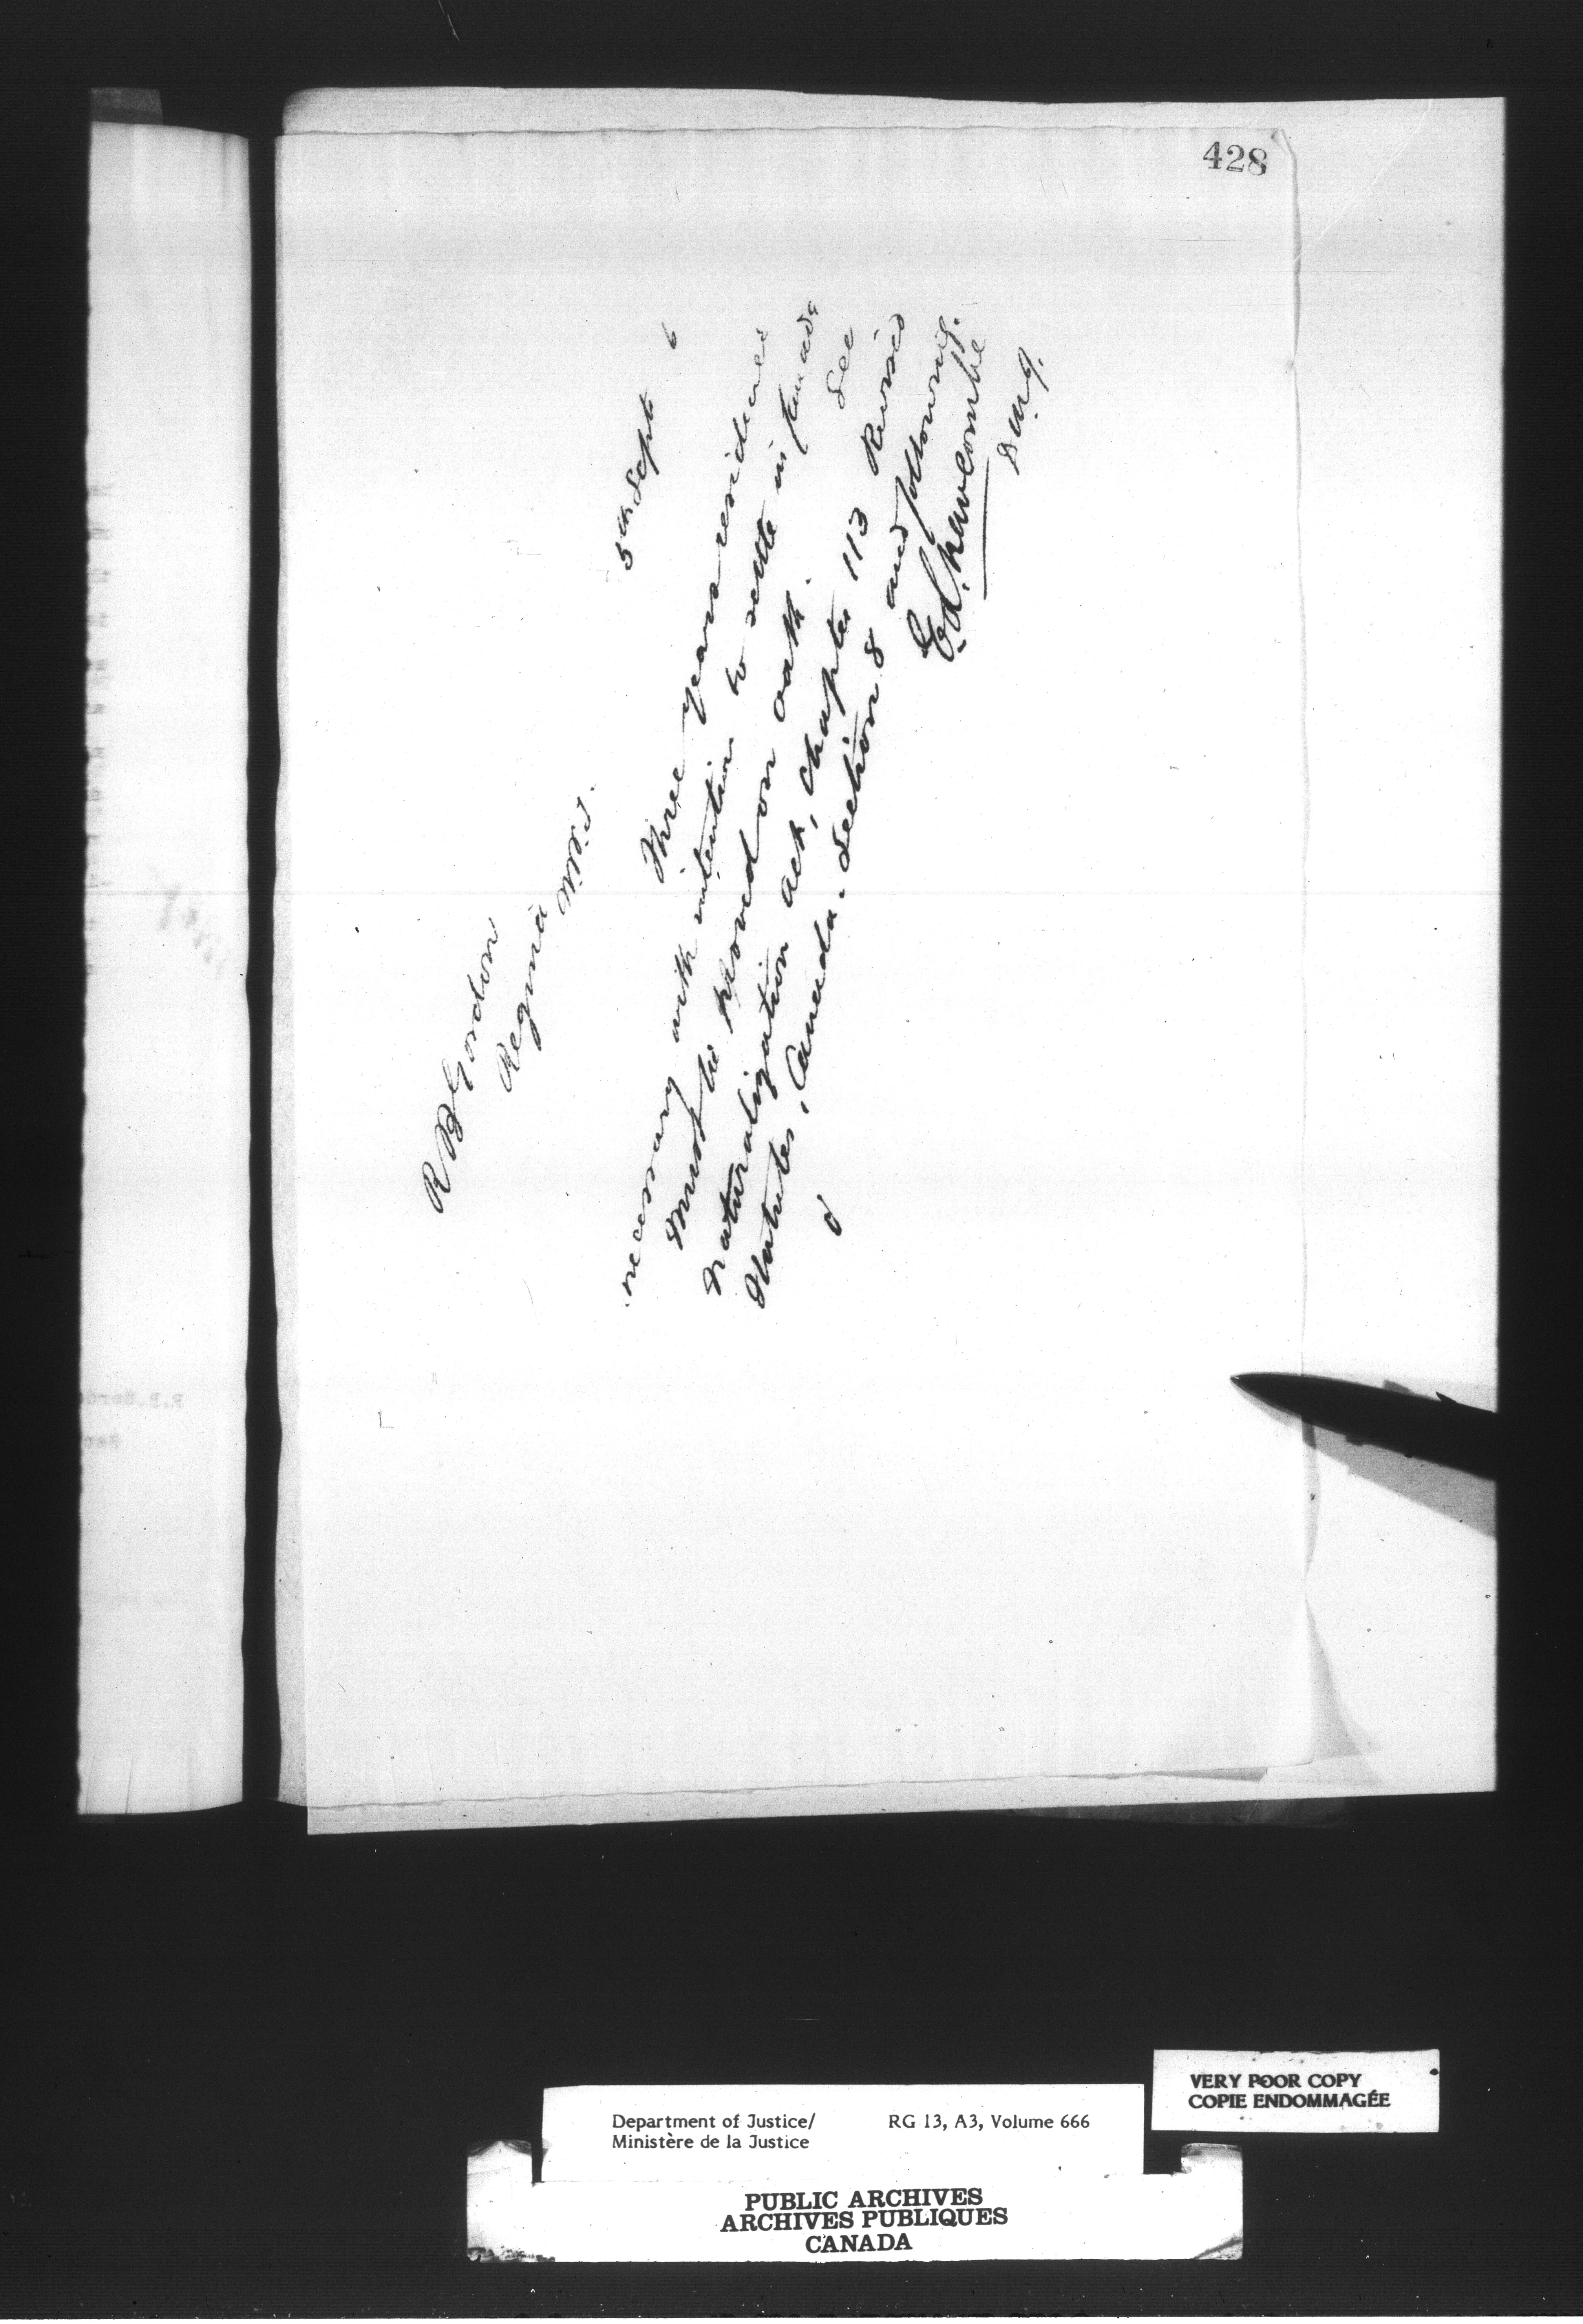 428
5th Sept 6
R B Gordon
Regina
N.W.T.
Three years residence
necessary with intention to settle in Canada
Must be proved on oath. See
naturalization act, chapter 113 Revised
Statutes, Canada. Section 8 and following.
E.L. Newcombe
D.M.J.
R.B.Gord
VERY POOR COPY
COPIE ENDOMMAGÉE
Department of Justice/ RG 13, A3, Volume 666
Ministère de la Justice
PUBLIC ARCHIVES
ARCHIVES PUBLIQUES
CANADA